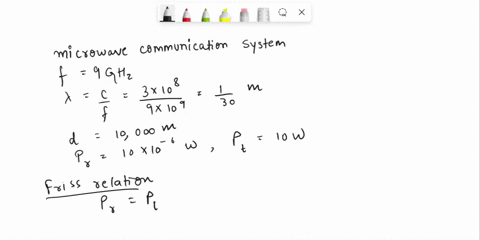 microwave communication system
f = 9 GHz
λ = c/f = 3×10⁸/9×10⁹ = 1/30 m
d = 10,000 m
Pᵣ = 10×10⁻⁶ W, Pₜ = 10W
Friss relation
Pᵣ = Pₜ